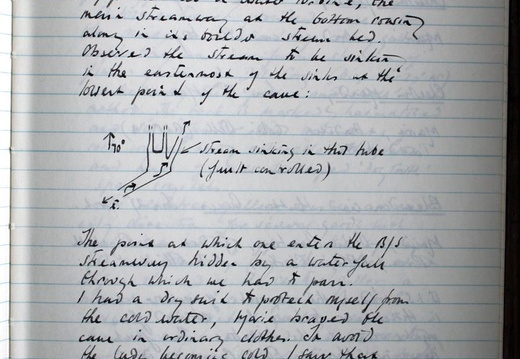 main streamway at the bottom
along in its boulder stream bed.
Observed the stream to be sinken
in the easternmost of the sinks at the
lowest point of the cave:
70°
stream sinking in this tube
(fault controlled)
The point at which one enter the B/S
streamway hidden by a waterfall
through which we had to pass.
I had a dry suit to protect myself from
the cold water, Marie braved the
cave in ordinary clothes. To avoid
the lady becoming cold I saw that